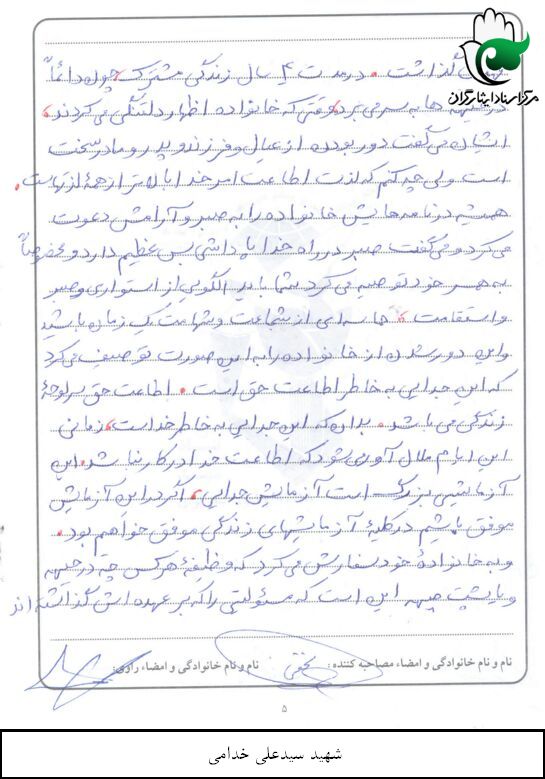 مرکز اسناد ایثارگران
گذاشت. در مدت ۴ سال زندگی مشترک چون دائماً
در جبهه ها به سر می برد وقتی که خانواده اظهار دلتنگی می کردند،
ایشان می گفت دور بودن از عیال و فرزند و پدر و مادر سخت
است ولی چه کنم که لذت اطاعت امر خدا بالاتر از همۀ لذتهاست.
همیشه در نامه هایش خانواده را به صبر و آرامش دعوت
می کرد و می گفت صبر در راه خدا پاداشی بس عظیم دارد و مخصوصاً
به همسر خود توصیه می کرد شما باید الگویی از استواری و صبر
و استقامت حماسه ای از شجاعت و شهامت یک زن باشید
و این دور شدن از خانواده را به این صورت توصیف می کرد
که این جدایی به خاطر اطاعت حق است. اطاعت حق سرلوحۀ
زندگی می باشد. بدان که این جدایی به خاطر خداست، زمانی
این ایام ملال آور می شود که اطاعت خدا در کار نباشد. این
آزمایشی بزرگ است آزمایش جدایی، اگر در این آزمایش
موفق باشم در کلیۀ آزمایشهای زندگی موفق خواهم بود.
و به خانوادۀ خود سفارش می کرد که وظیفۀ هر کس چه در جبهه
و یا پشت جبهه این است که مسئولیتی را که بر عهده اش گذاشته اند
نام و نام خانوادگی و امضاء مصاحبه کننده: نام و نام خانوادگی و امضاء راوی:
۵
شهید سیدعلی خدامی